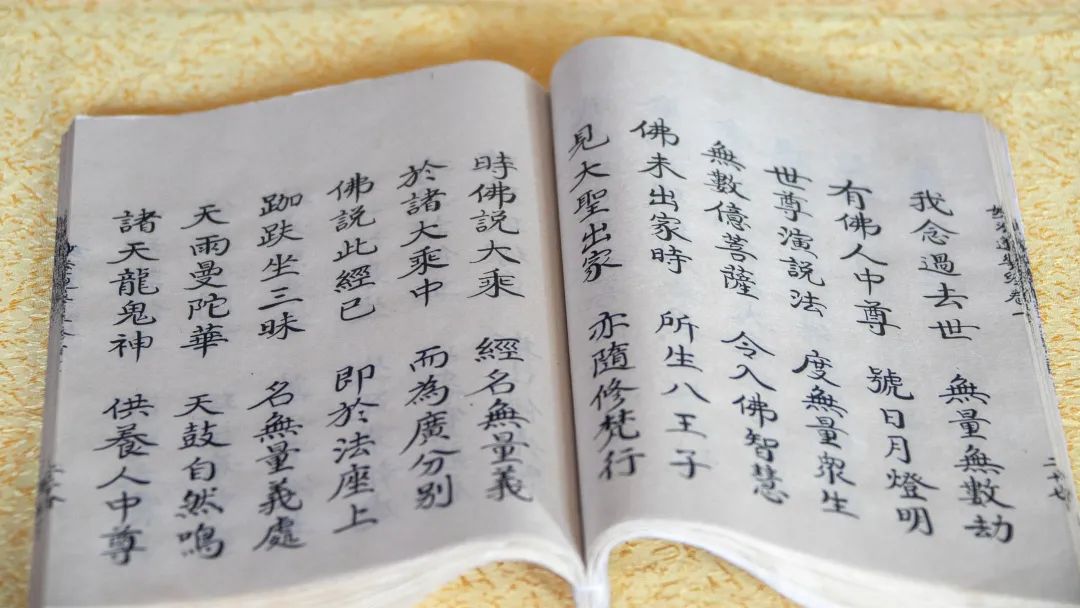 我念過去世　無量無數劫
有佛人中尊　號日月燈明
世尊演説法　度無量眾生
無數億菩薩　令入佛智慧
佛未出家時　所生八王子
見大聖出家　亦隨修梵行
時佛説大乘　經名無量義
於諸大乘中　而為廣分別
佛説此經已　即於法座上
跏趺坐三昧　名無量義處
天雨曼陀華　天鼓自然鳴
諸天龍鬼神　供養人中尊